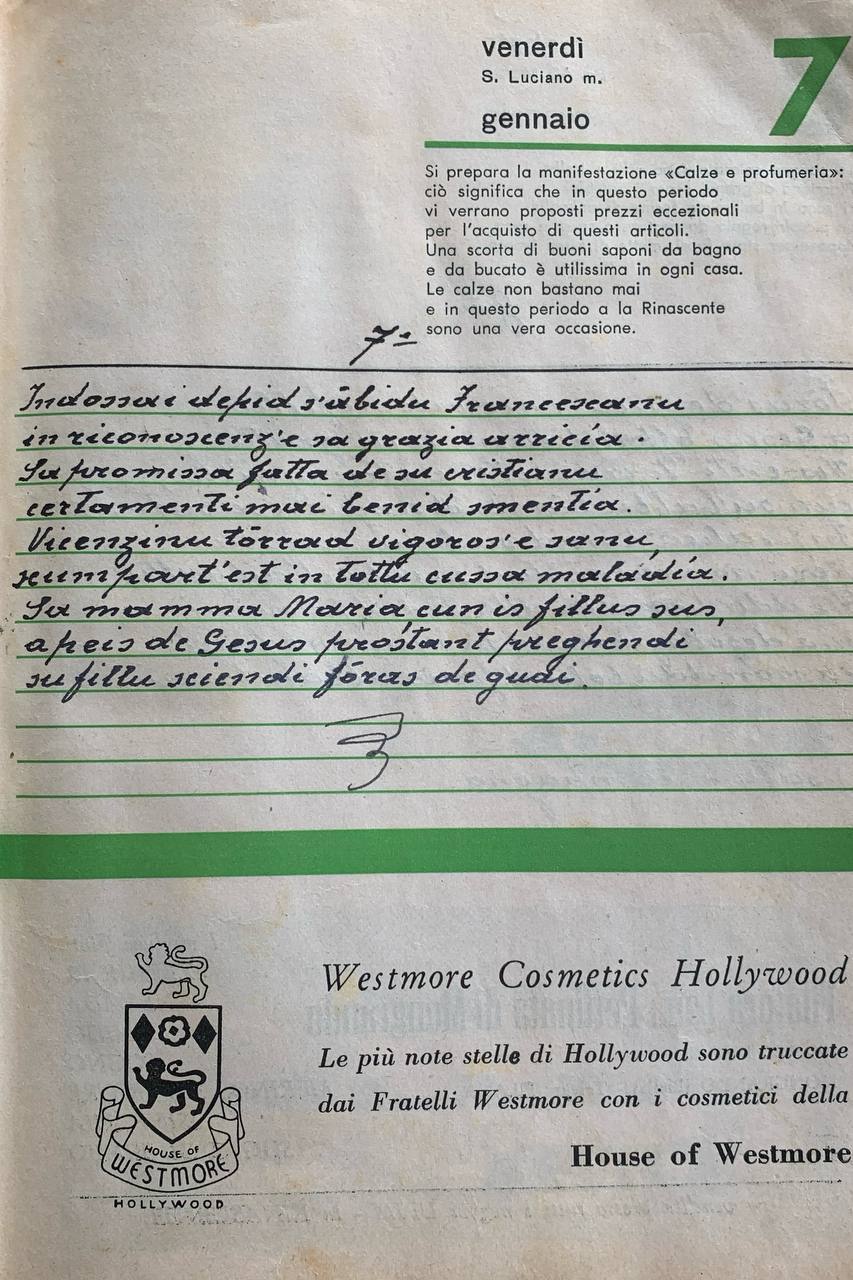 venerdì
S. Luciano m.
gennaio
7
Si prepara la manifestazione «Calze e profumeria»:
ciò significa che in questo periodo
vi verrano proposti prezzi eccezionali
per l'acquisto di questi articoli.
Una scorta di buoni saponi da bagno
e da bucato è utilissima in ogni casa.
Le calze non bastano mai
e in questo periodo a la Rinascente
sono una vera occasione.
7=
Indossai depid s'ābidu Francescanu
in riconoscenz'e sa grazia arricía.
Sa promissa fatta de su cristianu
certamenti mai benid smentía.
Vicenzinu tōrrad vigoros'e sanu,
scumpart'est in tottu cussa maladía.
Sa mamma Maria, cun is fillus sus,
a peis de Gesus prostant preghendi
su fillu sciendi fōras de guai.
Westmore Cosmetics Hollywood
Le più note stelle di Hollywood sono truccate
dai Fratelli Westmore con i cosmetici della
House of Westmore
HOUSE OF
WESTMORE
HOLLYWOOD